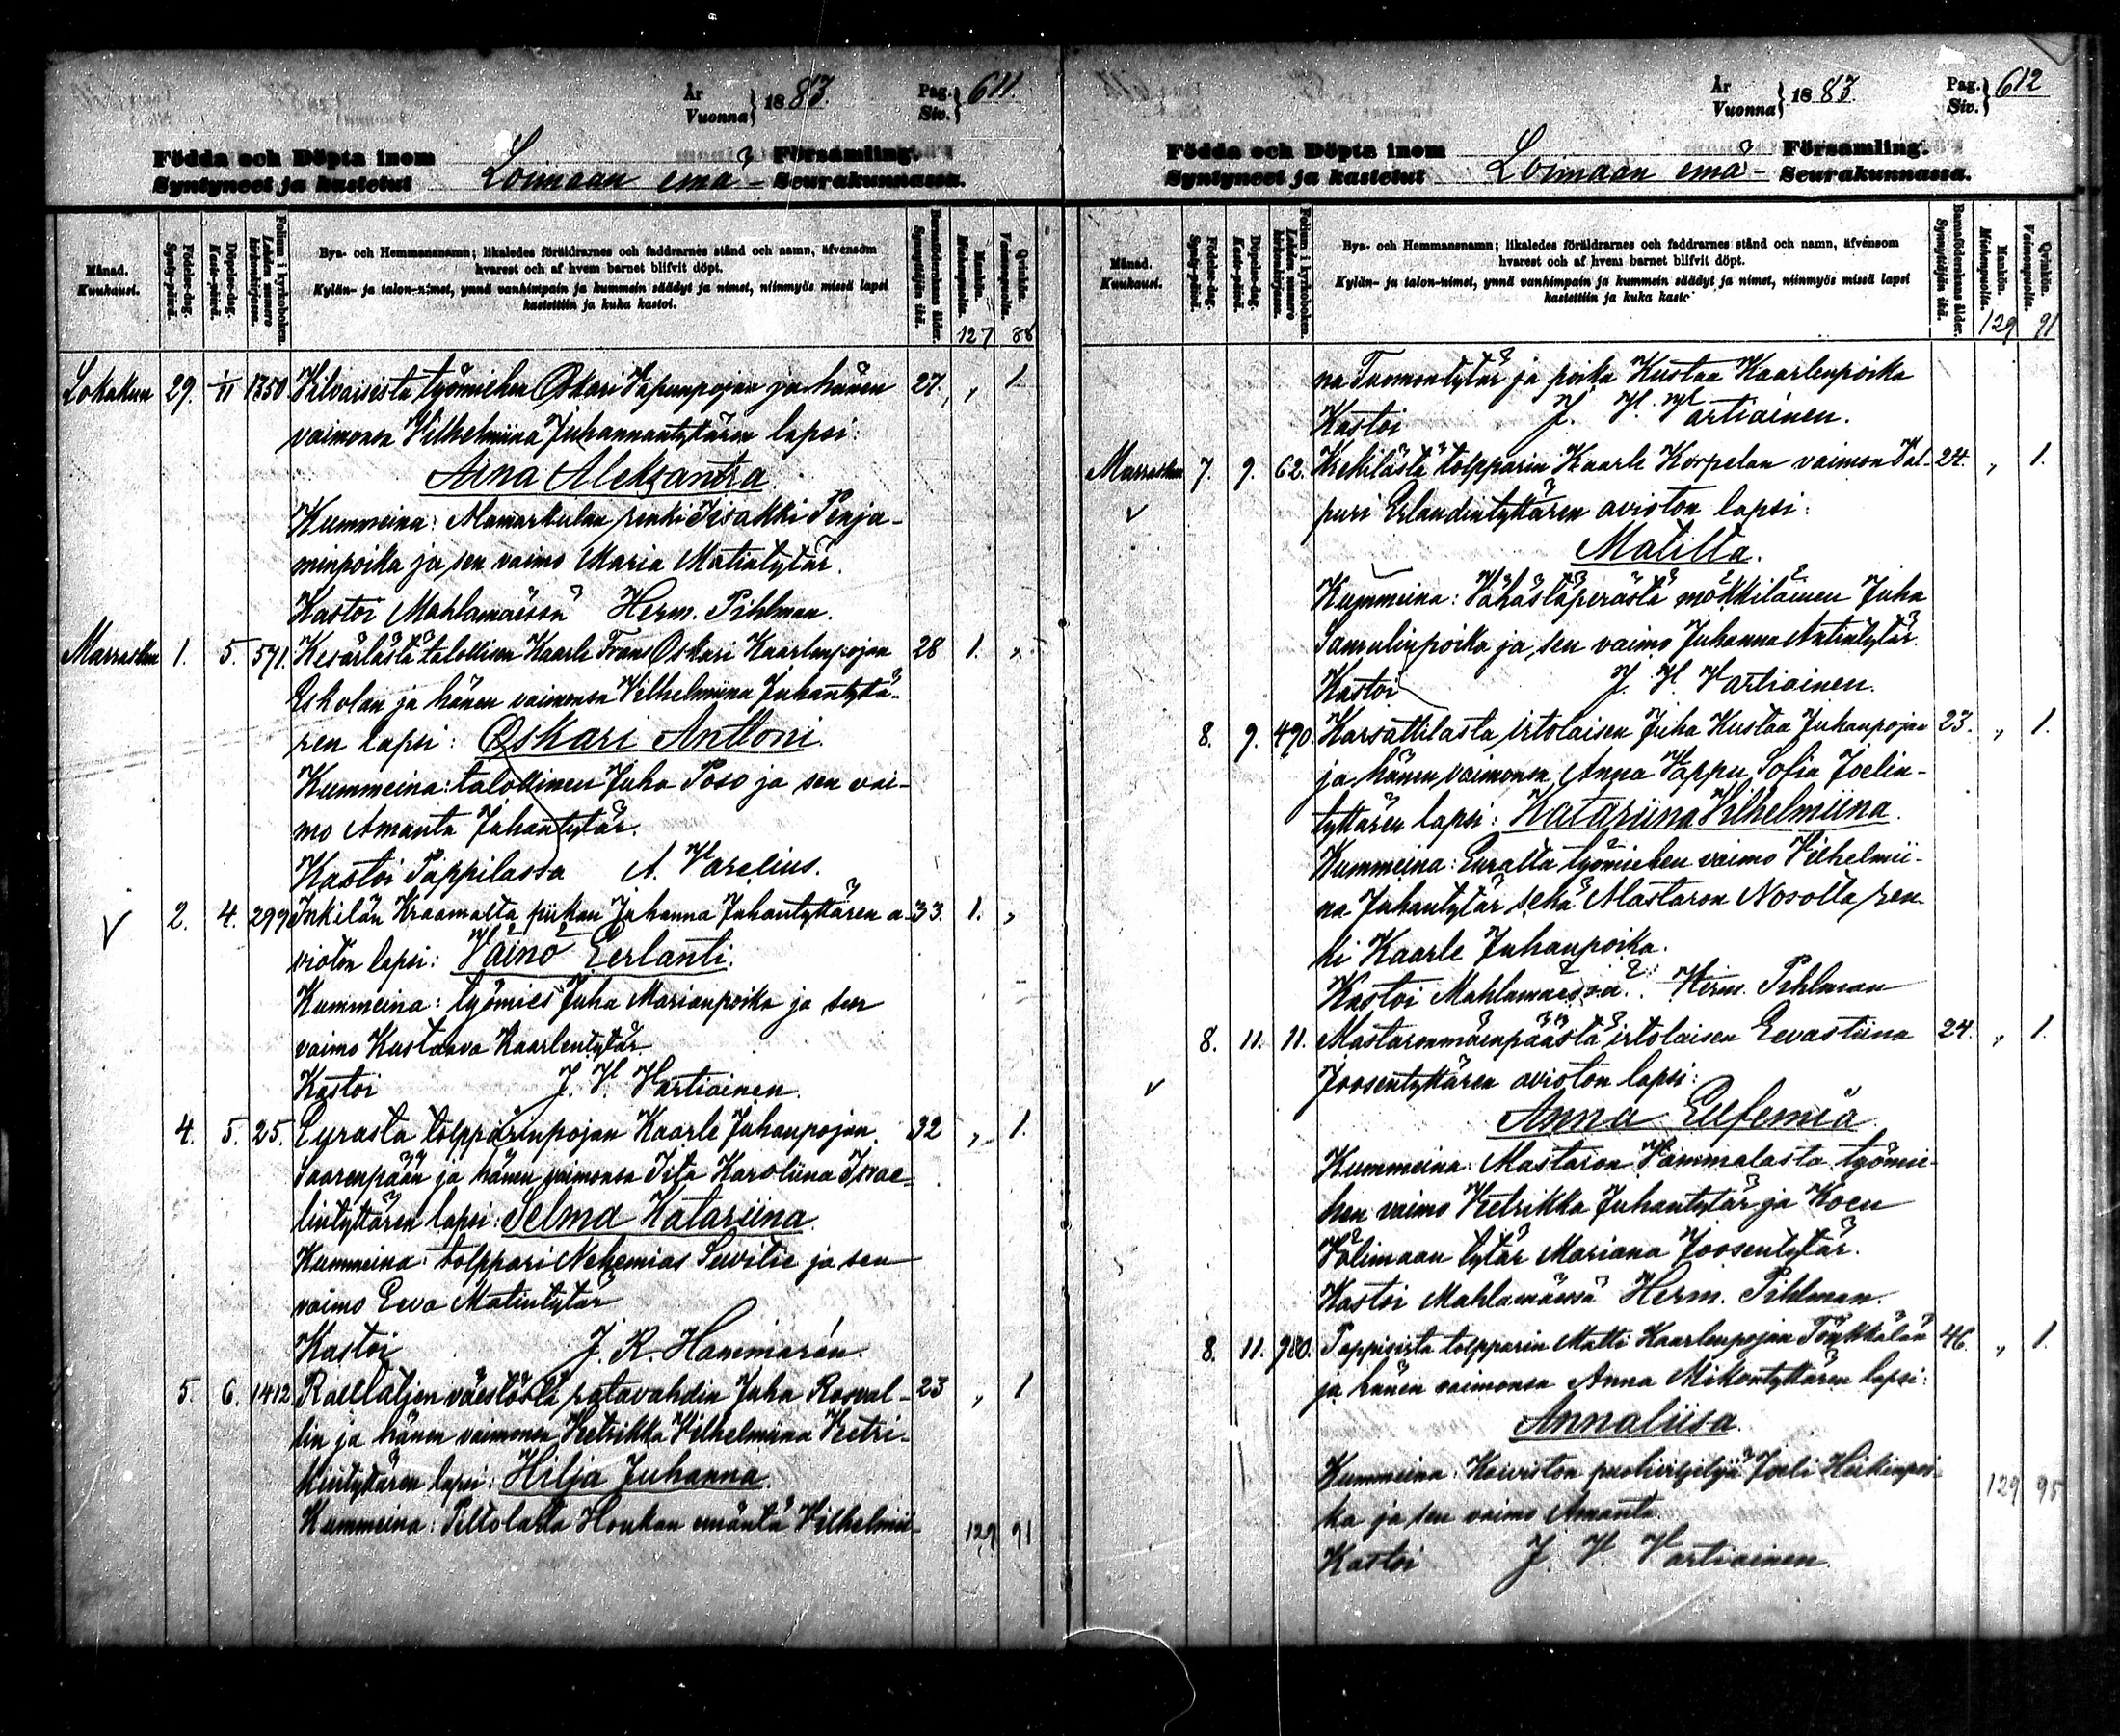 År
Vuonna } 1883.
Pag.
Siv. } 611.
Födda och Döpta inom
Syntyneet ja kastetut
Loimaan emä-
Församling.
Seurakunnassa.
Månad.
Kuukausi.
Födelse-dag.
Synty-päivä.
Döpelse-dag.
Kaste-päivä.
Folium i kyrkoboken.
Lehden numero kirkonkirjassa.
Bya- och Hemmansnamn; likaledes föräldrarnes och faddrarnes stånd och namn, äfvensom
hvarest och af hvem barnet blifvit döpt.
Kylän- ja talon-nimet, ynnä vanhimpain ja kummein säädyt ja nimet, niinmyös missä lapsi
kastettiin ja kuka kastoi.
Barnaföderskans ålder.
Synnyttäjän ikä.
Mankön.
Miehenpuolia.
Qvinkön.
Vaimonpuolia.
127 88
Lokakuu 29. 1/11 1350 työmiehen Oskari Vapunpojan ja hänen 27. „ 1
vaimonsa Vilhelmiina Juhannantyttären lapsi:
Aina Aleksantra
Kummeina: Mamarkulan renki Iisakki Penja-
minpoika ja sen vaimo Maria Matintytär.
Kastoi Mahlamäessä Herm. Pihlman.
Marraskuu 1. 5. 571. Kesärlästä talollisen Kaarle Frans Oskari Kaarlenpojan 28 1. „
Eskolan ja hänen vaimonsa Vilhelmiina Juhantyttä-
ren lapsi: Oskari Anttoni.
Kummeina: talollinen Juha Poso ja sen vai-
mo Amanta Juhantytär.
Kastoi Pappilassa A. Varelius.
2. 4. 299 Inkilän Kraamalta piikan Johanna Juhantyttären a- 33. 1. „
vioton lapsi: Väinö Eerlanti.
Kummeina: työmies Juha Marianpoika ja sen
vaimo Kustaava Kaarlentytär.
Kastoi J. V. Vartiainen.
4. 5. 25. Eurasta tolpparinpojan Kaarle Juhanpojan 32 „ 1.
Saarenpään ja hänen vaimonsa Iita Karoliina Israe-
lintyttären lapsi: Selma Katariina.
Kummeina: tolppari Nehemias Suvitie ja sen
vaimo Eeva Matintytär
Kastoi J. R. Hammarén.
5. 6. 1412 väestöstä ratavahdin Juha Rosval- 23 „ 1
lin ja hänen vaimonsa Vietrikka Vilhelmiina Vietri-
kintyttären lapsi: Hilja Juhanna.
Kummeina: Peltolalta Honkan emäntä Vilhelmii-
129 91
År
Vuonna } 1883.
Pag.
Siv. } 612
Födda och Döpta inom
Syntyneet ja kastetut
Loimaan emä-
Församling.
Seurakunnassa.
Månad.
Kuukausi.
Födelse-dag.
Synty-päivä.
Döpelse-dag.
Kaste-päivä.
Folium i kyrkoboken.
Lehden numero kirkonkirjassa.
Bya- och Hemmansnamn; likaledes föräldrarnes och faddrarnes stånd och namn, äfvensom
hvarest och af hvem barnet blifvit döpt.
Kylän- ja talon-nimet, ynnä vanhimpain ja kummein säädyt ja nimet, niinmyös missä lapsi
kastettiin ja kuka kasto
Barnaföderskans ålder.
Synnyttäjän ikä.
Mankön.
Miehenpuolia.
Qvinkön.
Vaimonpuolia.
129 91
na Tuomontytär ja poika Kustaa Kaarlenpoika
Kastoi J. V. Vartiainen.
Marraskuu 7. 9. 62. tolpparin Kaarle Korpelan vaimon Val- 24. „ 1.
puri Erlandintyttären avioton lapsi:
Matilta.
Kummeina: Vähästäperästä mökkiläinen Juha
Samulinpoika ja sen vaimo Juhanna Antintytär.
Kastoi J. V. Vartiainen.
8. 9. 490. Karsattilasta irtolaisen Juha Kustaa Juhanpojan 23. „ 1.
ja hänen vaimonsa Anna Vappu Sofia Joelin-
tyttären lapsi: Katariina Vilhelmiina.
Kummeina: Euralta työmiehen vaimo Vilhelmii-
na Juhantytär sekä Alastaron Nosolta ren-
ki Kaarle Juhanpoika.
Kastoi Mahlamäessä. Herm. Pihlman
8. 11. 11. Alastaronmäenpäästä irtolaisen Eevastiina 24. „ 1.
Joosentyttären avioton lapsi:
Anna Eufemia
Kummeina: Alastaron Vammalasta työmie-
hen vaimo Vietrikka Juhantytär ja Koen
Välimaan tytär Mariana Joosentytär.
Kastoi Mahlamäessä Herm. Pihlman.
8. 11. 980. Pappisista tolpparin Matti Kaarlenpojan Tönkkälän 46 „ 1.
ja hänen vaimonsa Anna Mikontyttären lapsi:
Annaliisa.
Kummeina: Koiviston puolivitjelijä Joeli Heikinpoi-
ka ja sen vaimo Amanta.
Kastoi J. V. Vartiainen.
129 95